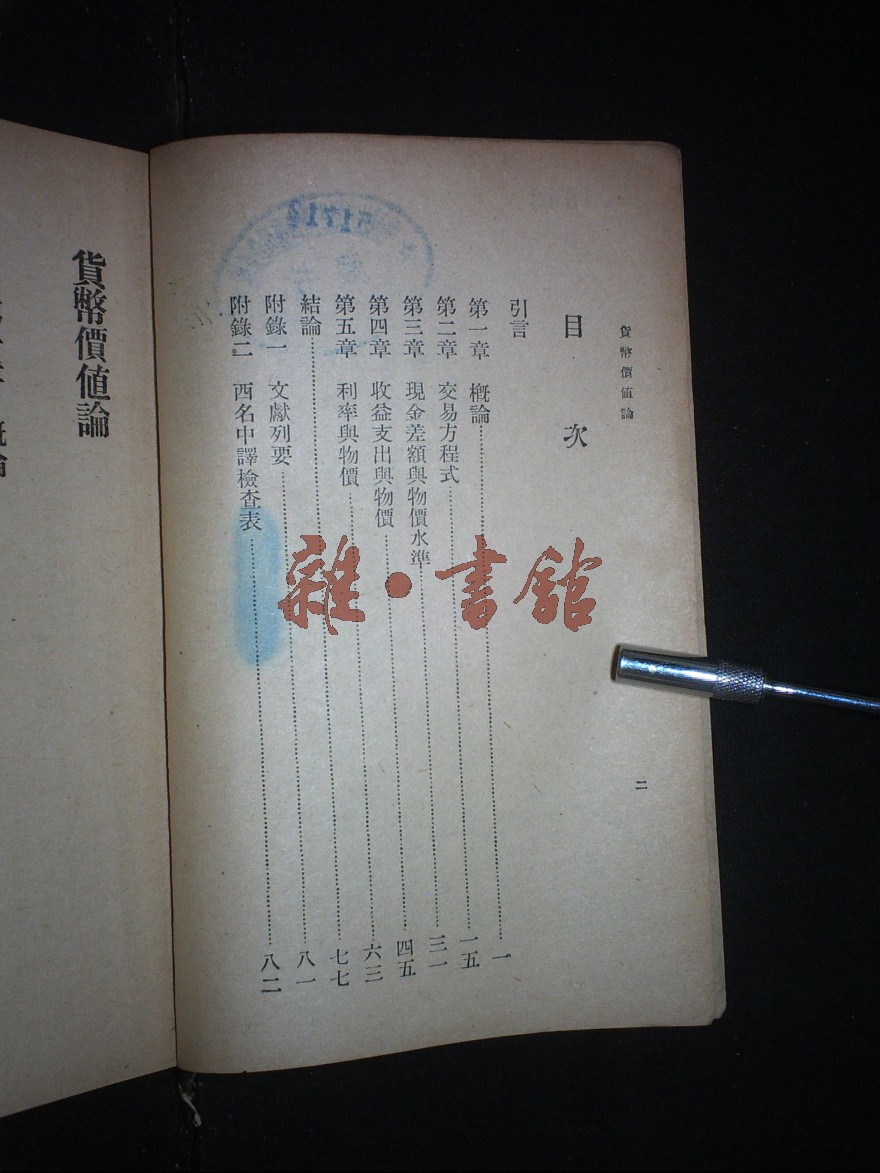 貨幣價值論
二
目次
引言
第一章 概論……一
第二章 交易方程式……一五
第三章 現金差額與物價水準……三一
第四章 收益支出與物價……四五
第五章 利率與物價……六三
結論……七七
附錄一 文獻列要……八一
附錄二 西名中譯檢查表……八二
貨幣價值論
雜·書館